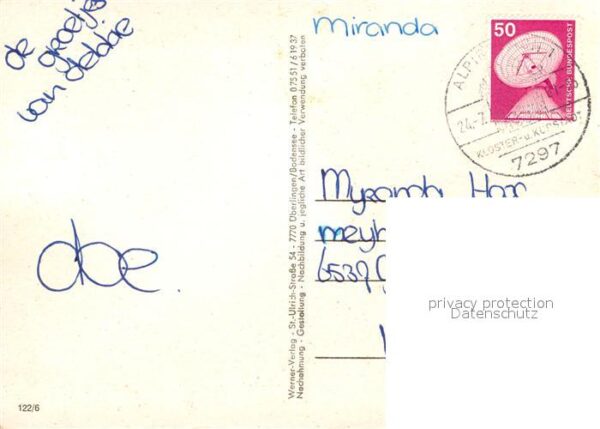 de groetjes
van debbie
doe.
122/6
Werner-Verlag - St.-Ulrich-Straße 54 - 7770 Überlingen/Bodensee - Telefon 0 75 51 / 6 19 37
Nachahmung - Gestaltung - Nachbildung u. jegliche Art bildlicher Verwendung verboten
Miranda
50
DEUTSCHE BUNDESPOST
ALPI
24.-7.
KLOSTER- u.
7297
privacy protection
Datenschutz